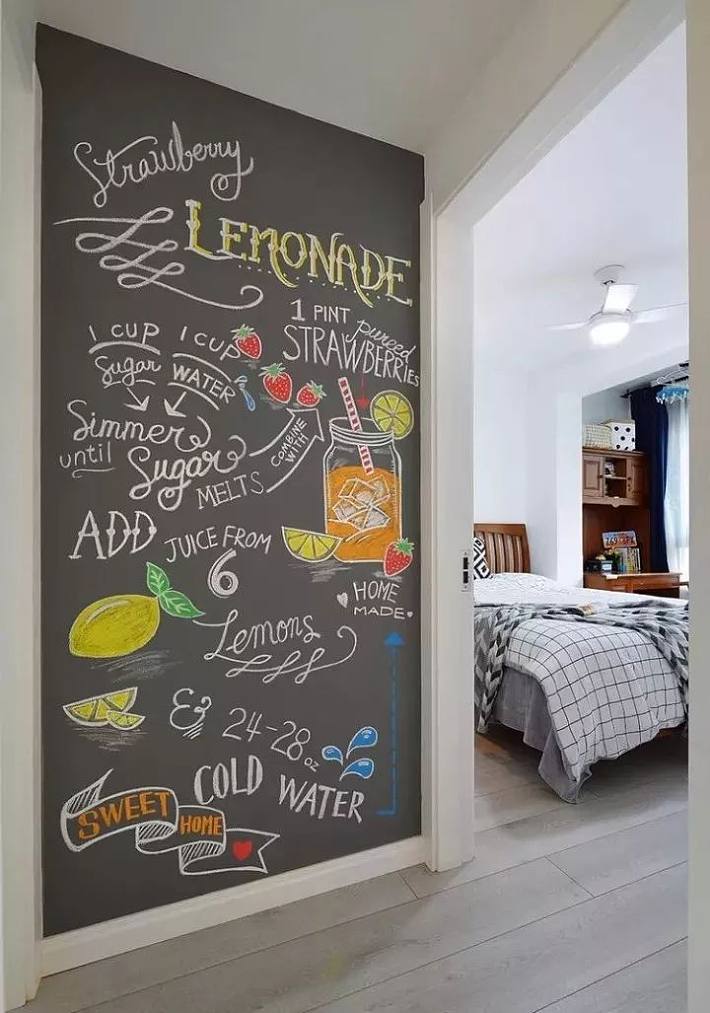 Strawberry
LEMONADE
1 CUP
Sugar
1 CUP
WATER
1 PINT
pureed
STRAWBERRIES
Simmer
until
Sugar
MELTS
COMBINE
WITH
ADD
JUICE FROM
6
Lemons
HOME
MADE
& 24-28 oz
COLD WATER
SWEET
HOME